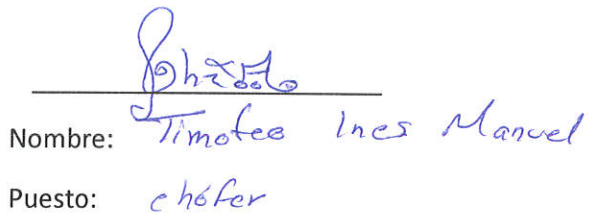 Nombre: Timoteo Ines Manuel
Puesto: chófer